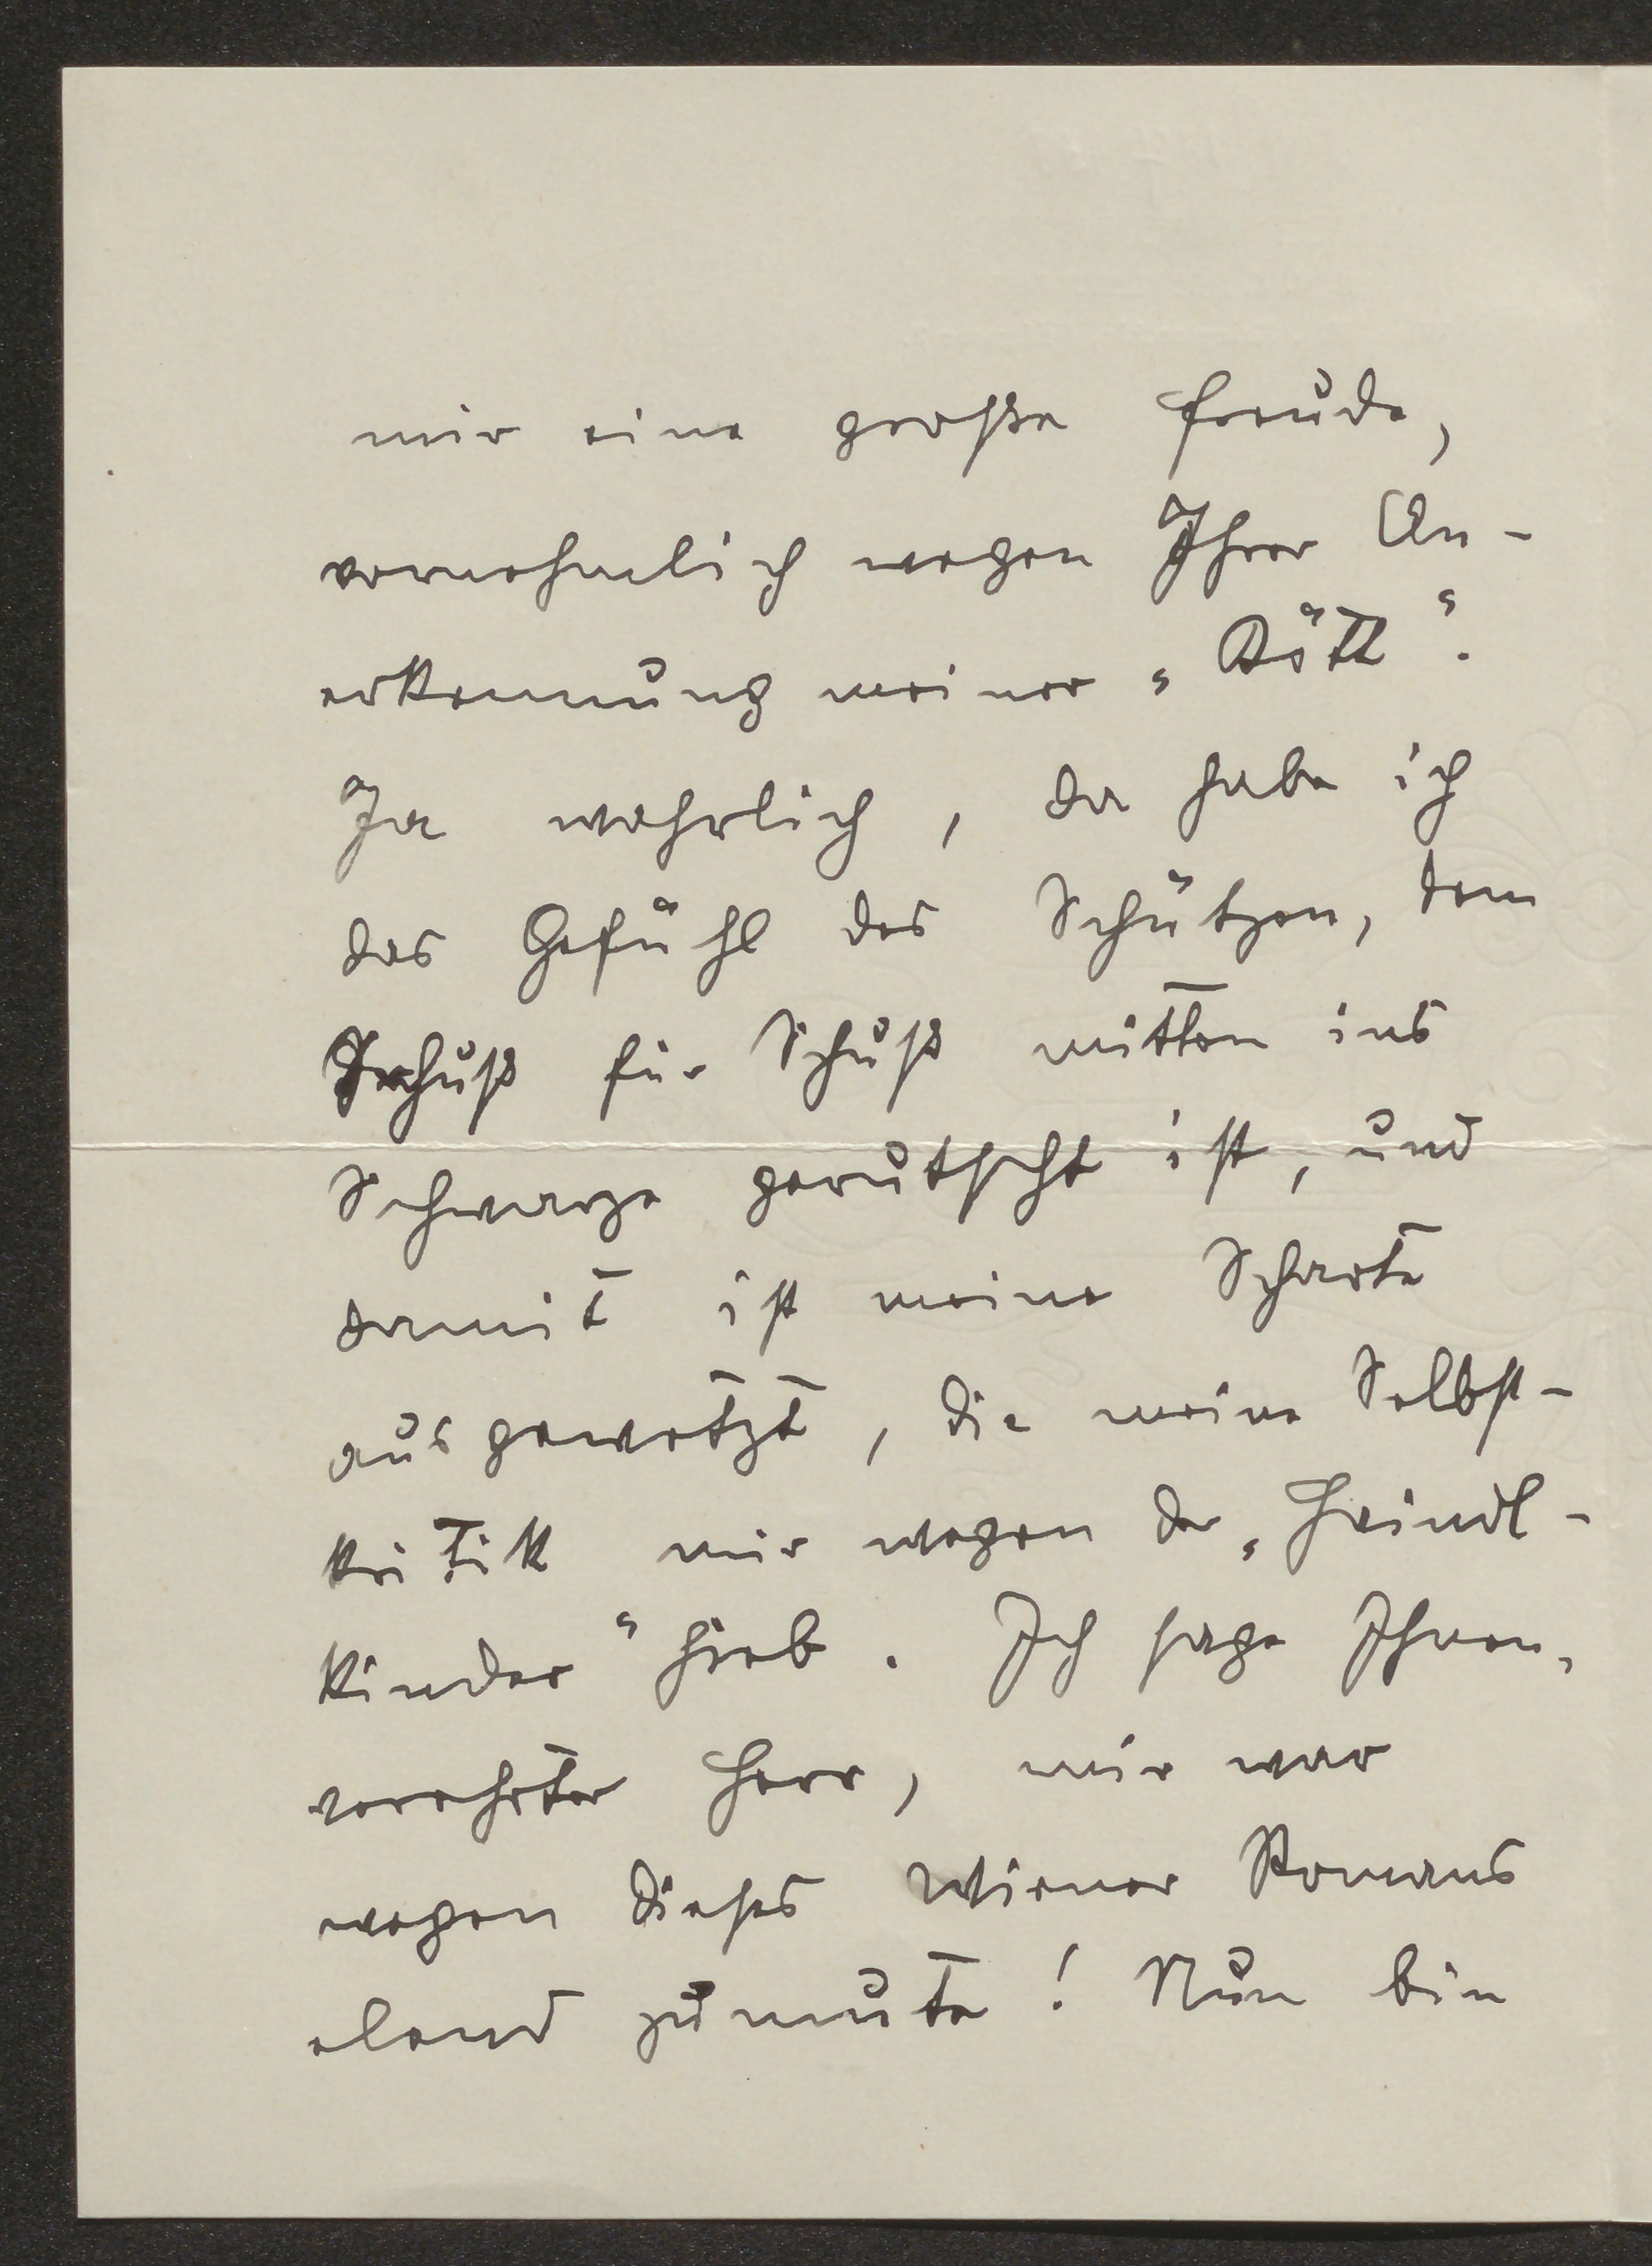 mir eine große Freude,
vornehmlich wegen Ihrer An-
erkennung meiner „Kött“.
Ja wahrlich, da habe ich
das Gefühl des Schützen, dem
Schuß für Schuß mitten ins
Schwarze gerutscht ist, und
damit ist meine Scharte
ausgewetzt, die meine Selbst-
kritik mir wegen der „Haindl-
kinder“ hieb. Ich sage Ihnen,
verehrter Herr, mir war
wegen dieses Wiener Romans
elend zumute! Nun bin